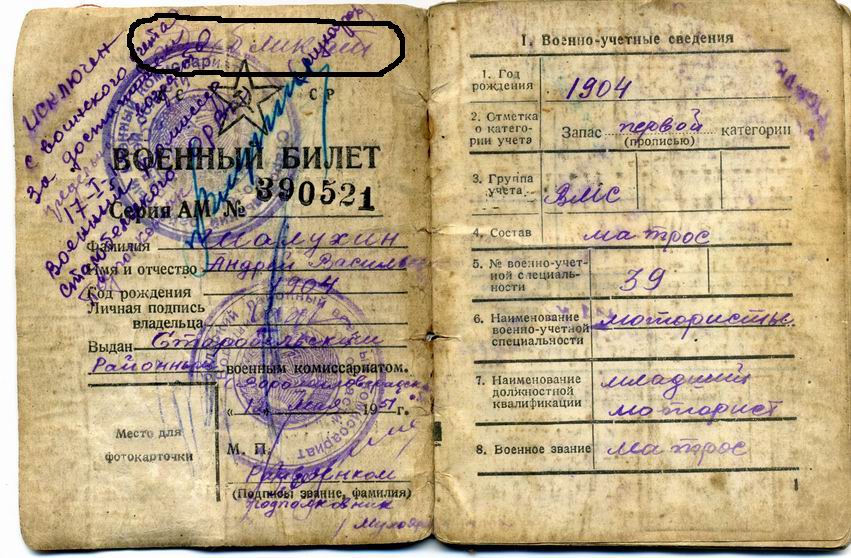 Дубликат
Исключен
с воинского учета
за достижением
возраста
17-I-
Военный комиссар
Старобельского РВК
С С Р
ВОЕННЫЙ БИЛЕТ
Серия АМ № 390521
Фамилия Малухин
Имя и отчество Андрей Василь
Год рождения 1904
Личная подпись
владельца
Выдан Старобельский
Районный военным комиссариатом.
Ворошиловградская
мая 1951 г.
Место для
фотокарточки
М. П.
Райвоенком
(Подпись звание, фамилия)
подполковник
I. Военно-учетные сведения
1. Год
рождения
1904
2. Отметка
о катего-
рии учета
Запас первой категории
(прописью)
3. Группа
учета
ВМС
4. Состав
матрос
5. № военно-учет-
ной специаль-
ности
39
6. Наименование
военно-учетной
специальности
мотористы
7. Наименование
должностной
квалификации
младший
моторист
8. Военное звание
матрос
1